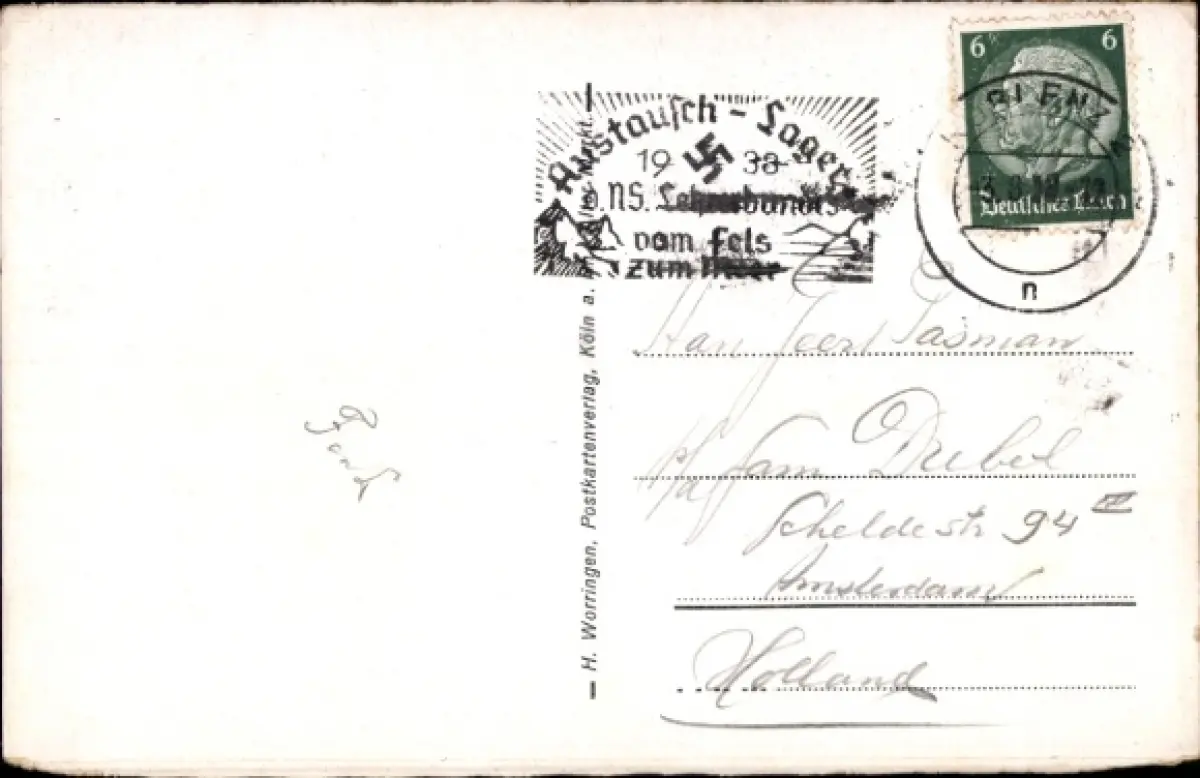 Austausch-Lager
19 38
d. NS. Lehrerbundes
vom Fels
zum Meer
6 6
Deutsches Reich
n
H. Worringen, Postkartenverlag, Köln a.
Tasman
p/a Fam Drebel
Scheldestr 94 III
Amsterdam
Holland